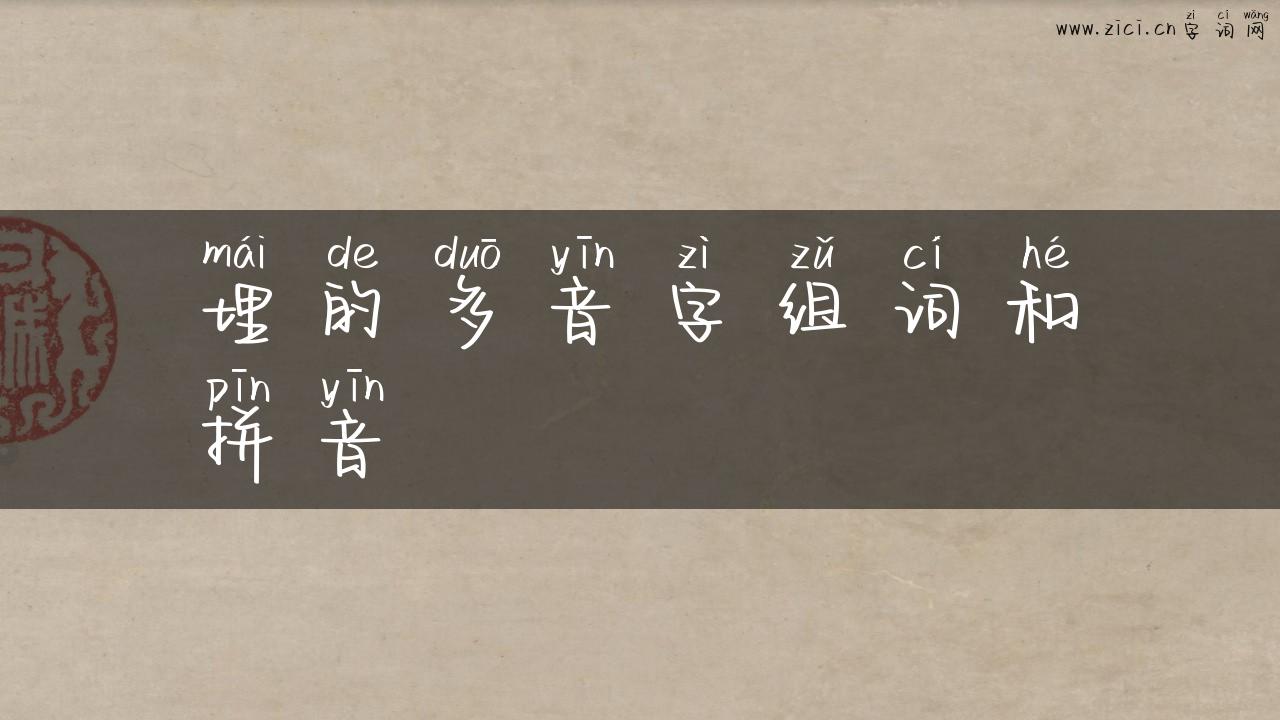 zì cí wǎng
www.zici.cn 字词网
mái de duō yīn zì zǔ cí hé
埋的多音字组词和
pīn yīn
拼音